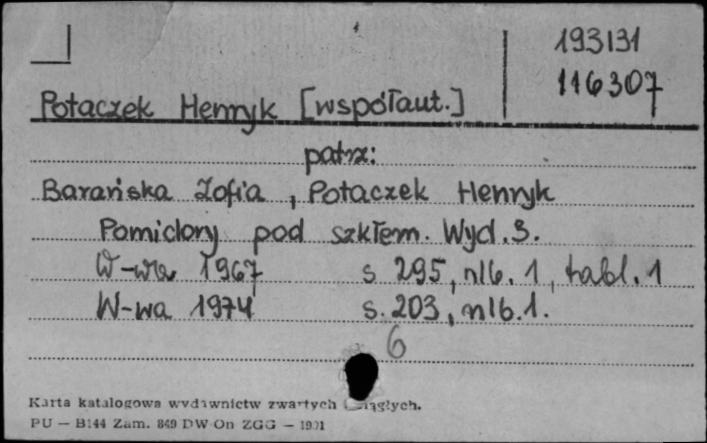 193131
116307
Potaczek Henryk [współaut.]
patrz:
Barańska Zofia, Potaczek Henryk
Pomidory pod szkłem. Wyd. 3.
W-wa 1967 s. 295, nlb. 1, tabl. 1
W-wa 1974 s. 203, nlb. 1.
6
Karta katalogowa wydawnictw zwartych i ciągłych.
PU — B144 Zam. 849 DW On ZGG —